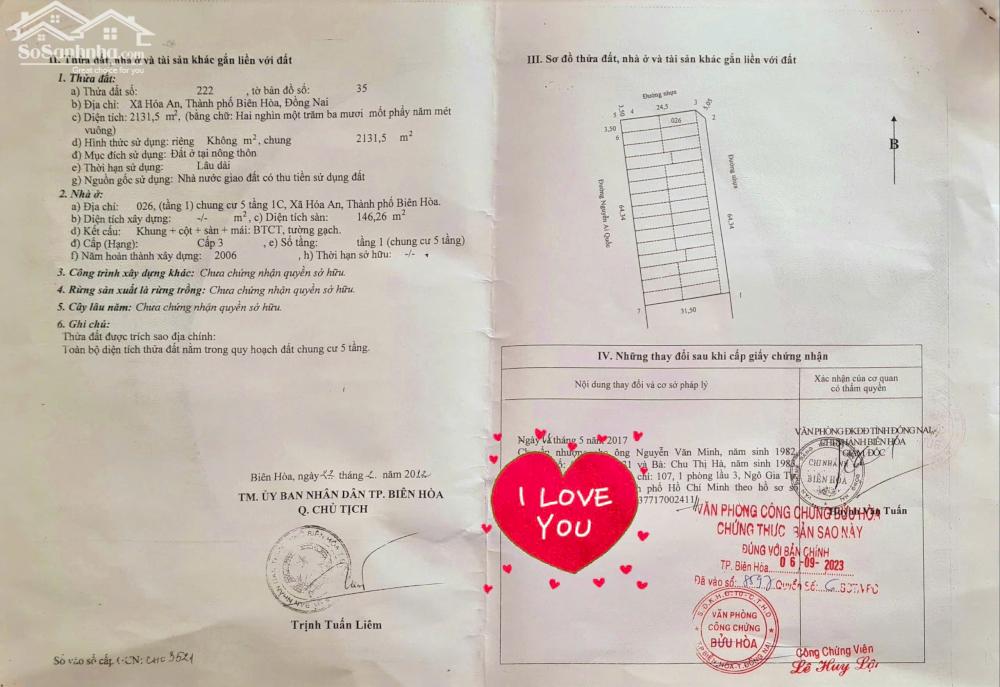 SoSanhnha.com
Great choice for you
II. Thửa đất, nhà ở và tài sản khác gắn liền với đất
1. Thửa đất:
a) Thửa đất số: 222 , tờ bản đồ số: 35
b) Địa chỉ: Xã Hóa An, Thành phố Biên Hòa, Đồng Nai
c) Diện tích: 2131,5 m², (bằng chữ: Hai nghìn một trăm ba mươi mốt phẩy năm mét
vuông)
d) Hình thức sử dụng: riêng Không m², chung 2131,5 m²
đ) Mục đích sử dụng: Đất ở tại nông thôn
e) Thời hạn sử dụng: Lâu dài
g) Nguồn gốc sử dụng: Nhà nước giao đất có thu tiền sử dụng đất
2. Nhà ở:
a) Địa chỉ: 026, (tầng 1) chung cư 5 tầng 1C, Xã Hóa An, Thành phố Biên Hòa.
b) Diện tích xây dựng: -/- m², c) Diện tích sàn: 146,26 m²
d) Kết cấu: Khung + cột + sàn + mái: BTCT, tường gạch.
đ) Cấp (Hạng): Cấp 3 , e) Số tầng: tầng 1 (chung cư 5 tầng)
f) Năm hoàn thành xây dựng: 2006 , h) Thời hạn sở hữu: -/-
3. Công trình xây dựng khác: Chưa chứng nhận quyền sở hữu.
4. Rừng sản xuất là rừng trồng: Chưa chứng nhận quyền sở hữu.
5. Cây lâu năm: Chưa chứng nhận quyền sở hữu.
6. Ghi chú:
Thửa đất được trích sao địa chính:
Toàn bộ diện tích thửa đất nằm trong quy hoạch đất chung cư 5 tầng.
Biên Hòa, ngày tháng năm 2012
TM. ỦY BAN NHÂN DÂN TP. BIÊN HÒA
Q. CHỦ TỊCH
Trịnh Tuấn Liêm
Số vào sổ cấp GCN: 3521
III. Sơ đồ thửa đất, nhà ở và tài sản khác gắn liền với đất
Đường nhựa
24,5
3,50
5,05
5 4 3 2
3,50
6
026
Đường Nguyễn Ái Quốc
64,34
Đường nhựa
64,34
7 31,50 1
B
IV. Những thay đổi sau khi cấp giấy chứng nhận
Nội dung thay đổi và cơ sở pháp lý
Xác nhận của cơ quan
có thẩm quyền
Ngày tháng 5 năm 2017
Chuyển nhượng cho ông Nguyễn Văn Minh, năm sinh 1982,
và Bà: Chu Thị Hà, năm sinh 1983
chỉ: 107, 1 phòng lầu 3, Ngô Gia Tự,
phố Hồ Chí Minh theo hồ sơ số
37717002411
I LOVE
YOU
VĂN PHÒNG ĐKĐĐ TỈNH ĐỒNG NAI
CHI NHÁNH BIÊN HÒA
GIÁM ĐỐC
CHI NHÁNH
BIÊN HÒA
Huỳnh Văn Tuấn
VĂN PHÒNG CÔNG CHỨNG BỬU HÒA
CHỨNG THỰC BẢN SAO NÀY
ĐÚNG VỚI BẢN CHÍNH
TP. Biên Hòa. 06-09-2023
Đã vào sổ: Quyển Số:
VĂN PHÒNG
CÔNG CHỨNG
BỬU HÒA
Công Chứng Viên
Lê Huy Lội